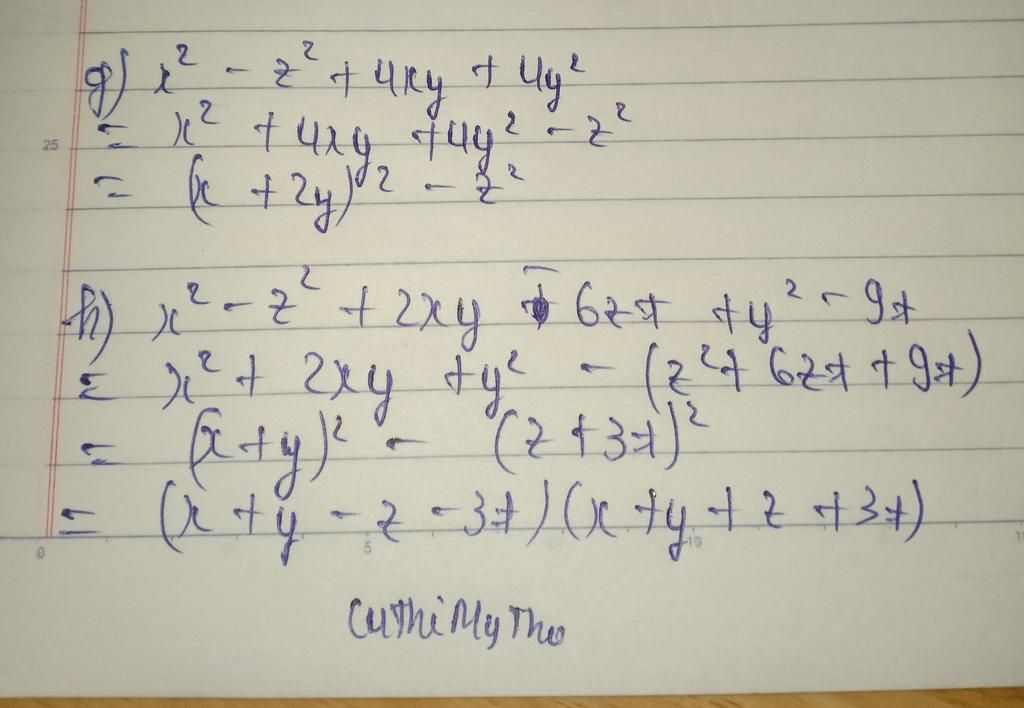 g) x² - z² + 4xy + 4y²
= x² + 4xy + 4y² - z²
= (x + 2y)² - z²
h) x² - z² + 2xy - 6zt + y² - 9t
= x² + 2xy + y² - (z² + 6zt + 9t)
= (x + y)² - (z + 3t)²
= (x + y - z - 3t)(x + y + z + 3t)
CuThiMyTho
25
0 5 10